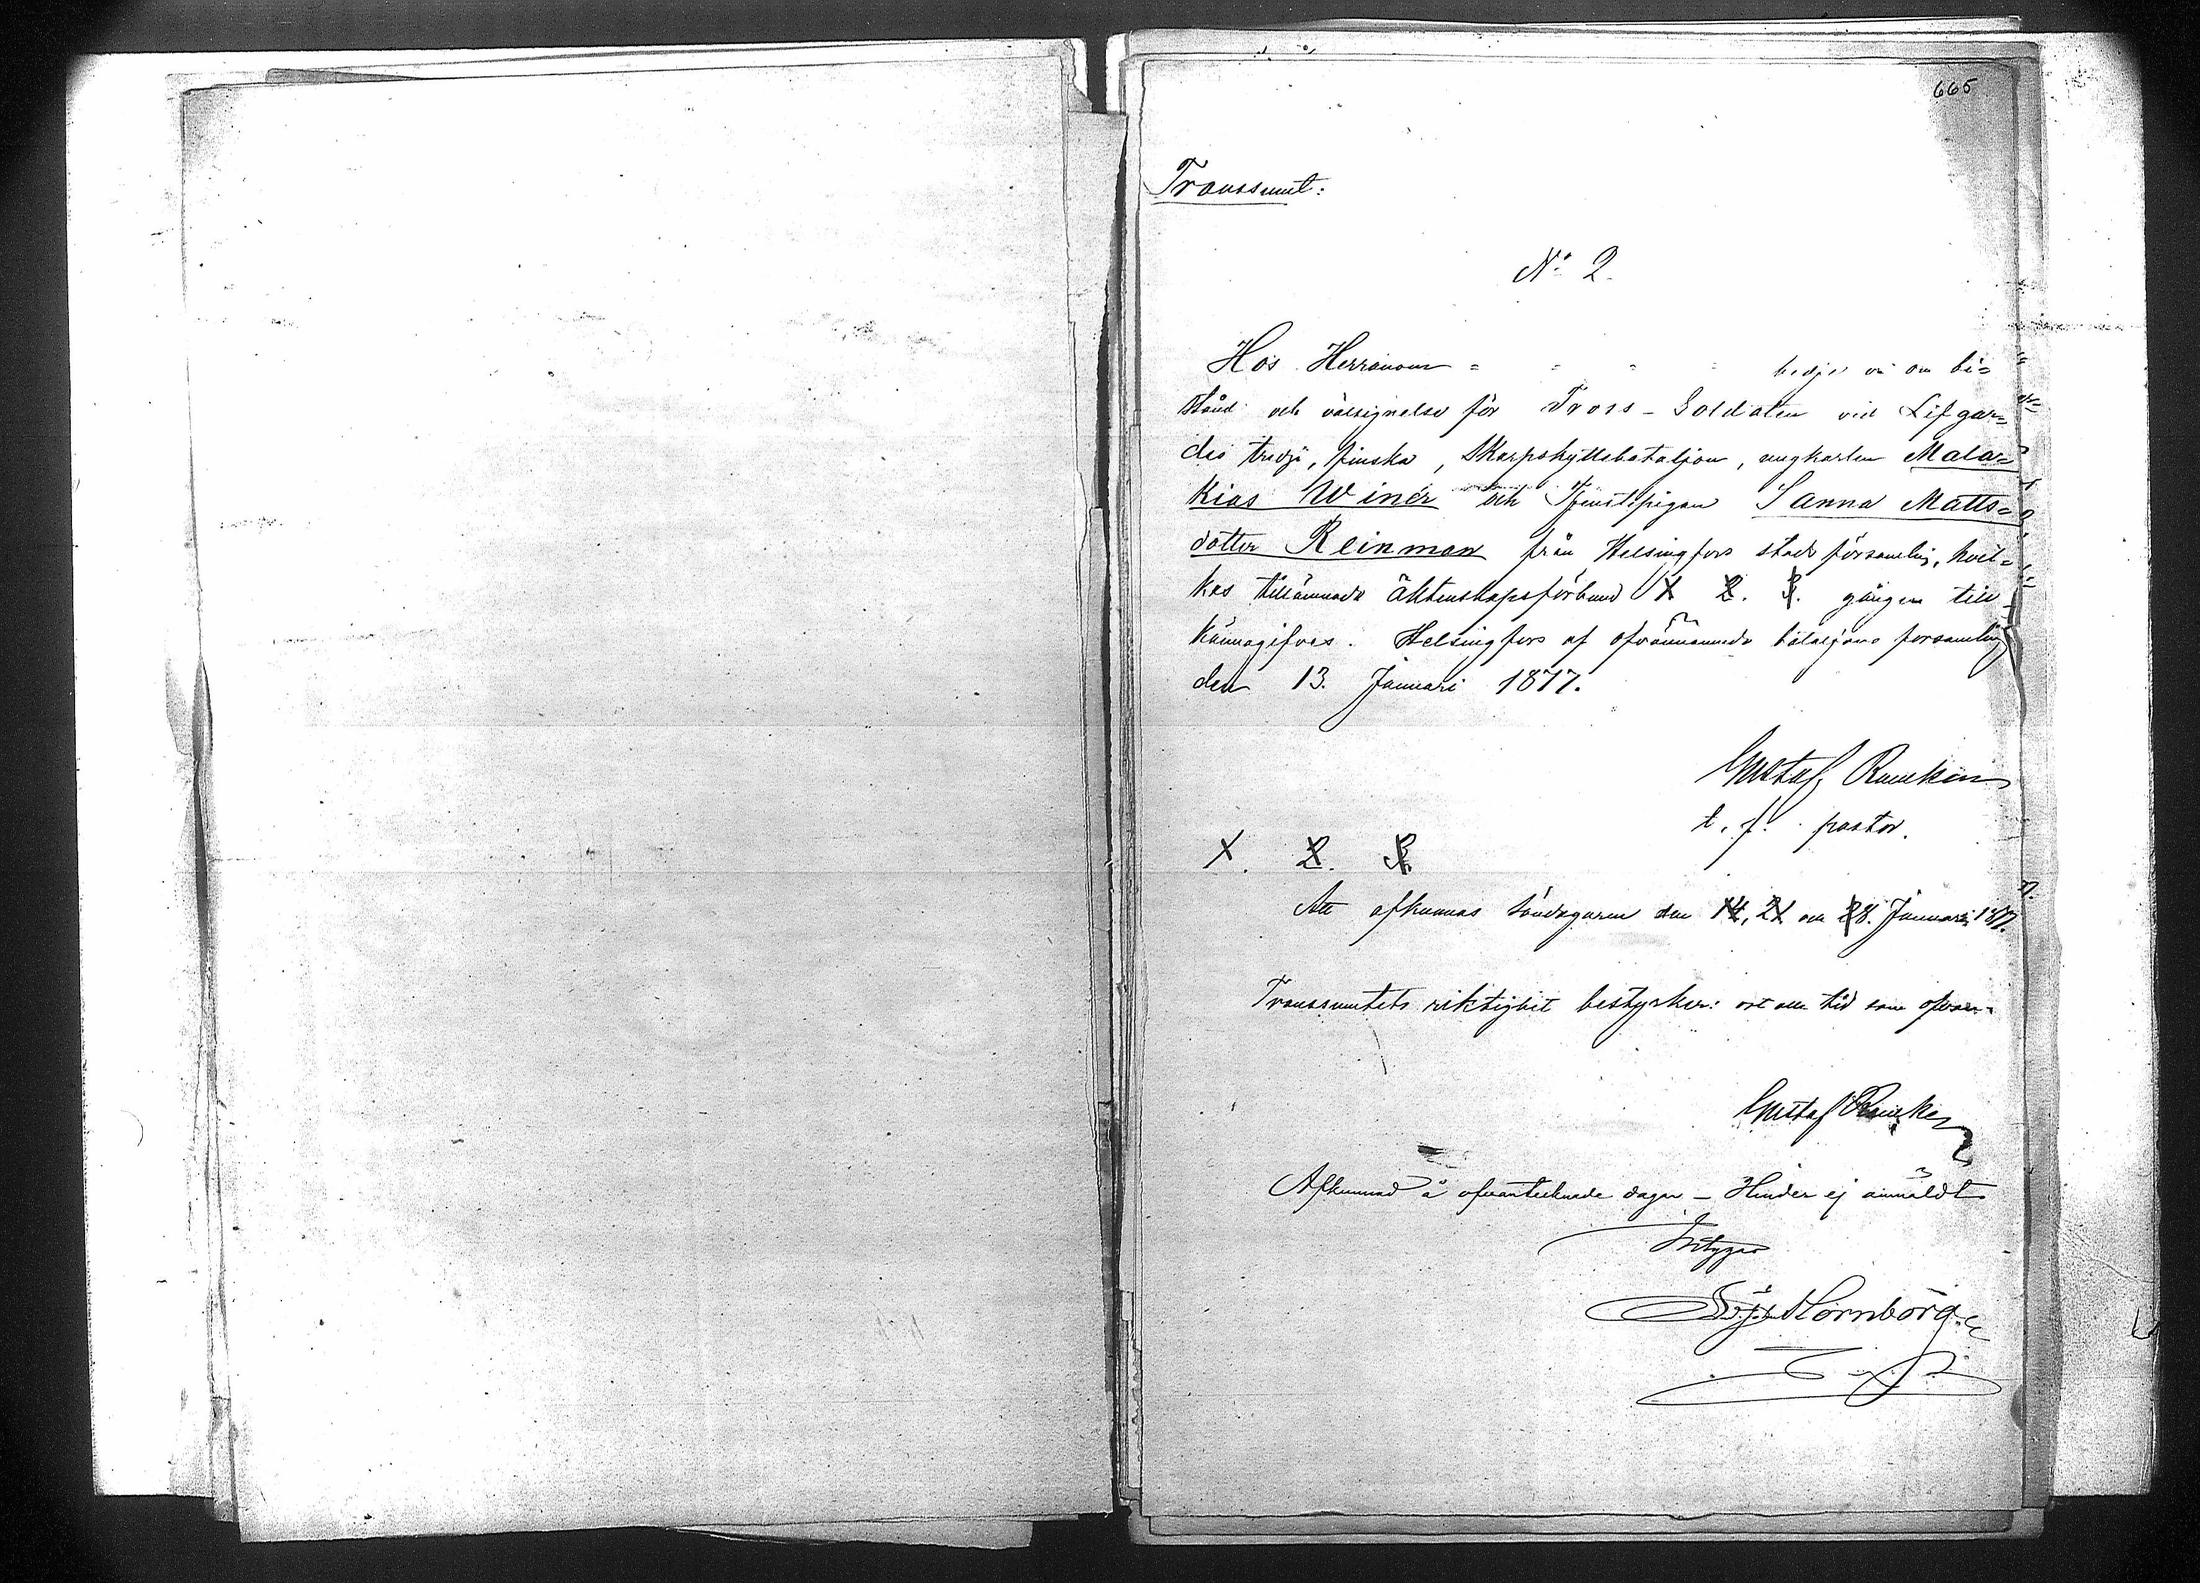 665
Transsumt:
No 2.
Hos Herranom = = = = bedja vi om bi=
stånd och välsignelse för Tross-Soldaten vid Lifgar=
des tredje, finska, Skarpskyttebataljon, ungkarlen Mala=
kias Winér och Tjenstepigan Sanna Matts=
dotter Reinman från Helsingfors stads församling, hvil=
kas tillämnade äktenskapsförbund 1 2. 3. gången till=
kännagifves. Helsingfors af ofvannämnde bataljons församling
den 13. Januari 1877.
Gustaf
t. f. pastor.
1. 2. 3.
Att afkunnas söndagarne den 14, 21 och 28. Januari 1877.
Transsumtets riktighet bestyrker: ort och tid som ofvan.
Gustaf
Afkunnad å ofvantecknade dagar – Hinder ej anmäldt
Intygar
Hornborg